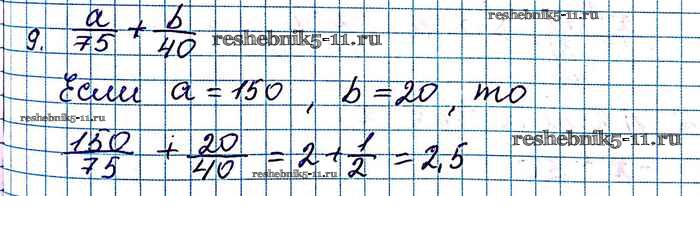 reshebnik5-11.ru
9. a/75 + b/40 reshebnik5-11.ru
Если a = 150, b = 20, то
reshebnik5-11.ru
150/75 + 20/40 = 2 + 1/2 = 2,5 reshebnik5-11.ru
reshebnik5-11.ru